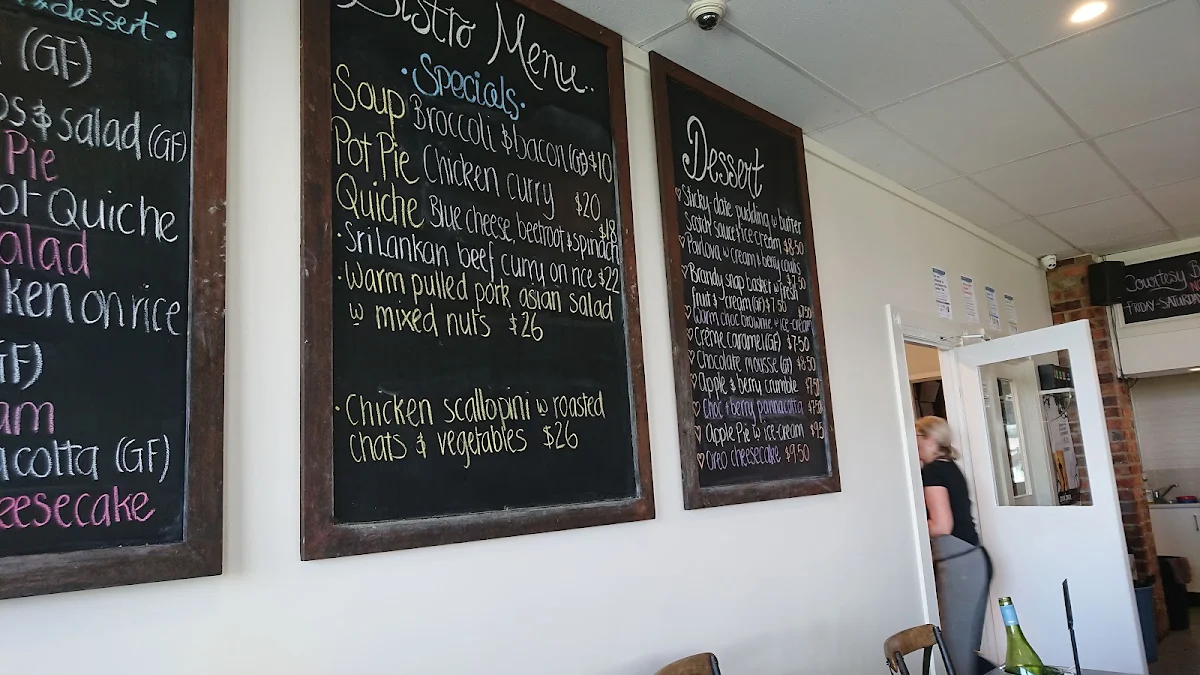 & dessert .
(GF)
& salad (GF)
Pie
Quiche
alad
ken on rice
GF)
am
acotta (GF)
eesecake
Bistro Menu..
. Specials .
Soup Broccoli & bacon (GF) $10
Pot Pie Chicken curry $20
Quiche Blue cheese, beetroot & spinach $18
. Sri Lankan beef curry on rice $22
. Warm pulled pork asian salad
w mixed nuts $26
. Chicken scallopini w roasted
chats & vegetables $26
Dessert
♡ Sticky-date pudding w butter
Scotch sauce & ice cream $8.50
♡ Pavlova w cream & berry coulis
$7.50
♡ Brandy snap basket w fresh
fruit & cream (GF) $7.50
♡ Warm choc brownie + ice-cream
♡ Crème caramel (GF) $7.50
♡ Chocolate mousse (GF) $8.50
♡ Apple & berry crumble $7.50
♡ Choc & berry pannacotta $7.50
♡ Apple Pie w ice-cream
♡ Oreo cheesecake $9.50
Courtesy
FRIDAY-SATURDAY